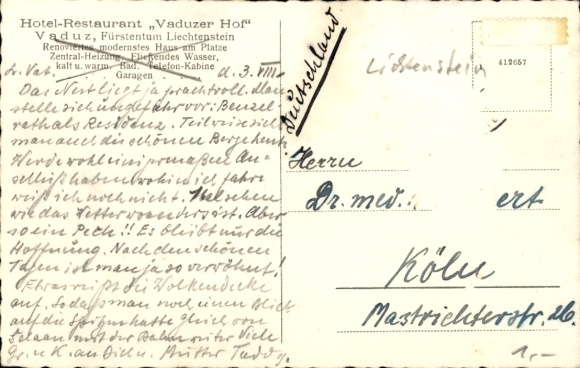 Hotel-Restaurant „Vaduzer Hof"
Vaduz, Fürstentum Liechtenstein
Renoviertes modernstes Haus am Platze
Zentral-Heizung, Fließendes Wasser,
kalt u. warm. Bad. Telefon-Kabine
Garagen
d. 3. VIII.
Das Nest liegt ja prachtvoll. Man
stelle sich ungefähr vor: Benzel-
rath als Residenz. Teilweise
man auch die schönen Berge heute
Werde wohl einigermaßen An-
schluß haben wohin ich fahre
weiß ich noch nicht. Mal sehen
wie das Wetter woanders ist. Aber
so ein Pech!! Es bleibt nur die
Hoffnung. Nach den schönen
Tagen ist man ja so verwöhnt!
Etwas reißt die Wolkendecke
auf. Sodaß man noch einen Blick
auf die Spitzen hatte gleich von
mit der Bahn weiter Viele
Gr. u. K. an Mutter
Deutschland
Lichtenstein
412657
Herrn
Dr. med. ert
Köln
Mastrichterstr. 26.
1.-